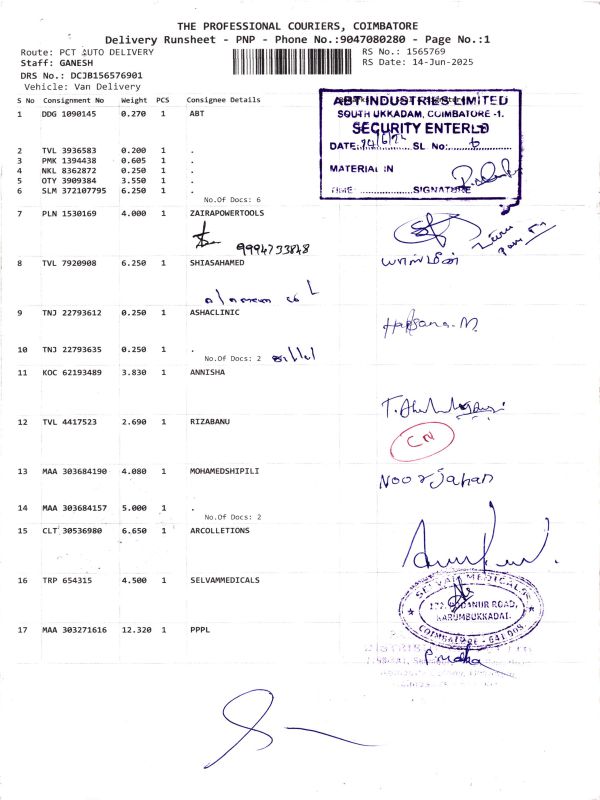 THE PROFESSIONAL COURIERS, COIMBATORE
Delivery Runsheet - PNP - Phone No.:9047080280 - Page No.:1
Route: PCT AUTO DELIVERY
RS No.: 1565769
Staff: GANESH
RS Date: 14-Jun-2025
DRS No.: DCJB156576901
Vehicle: Van Delivery
S No Consignment No Weight PCS Consignee Details
1 DDG 1090145 0.270 1 ABT
ABT INDUSTRIES LIMITED
SOUTH UKKADAM, COIMBATORE -1.
SECURITY ENTERED
DATE SL No:
MATERIAL IN
TIME: SIGNATURE
2 TVL 3936583 0.200 1 .
3 PMK 1394438 0.605 1 .
4 NKL 8362872 0.250 1 .
5 OTY 3909384 3.550 1 .
6 SLM 372107795 6.250 1 .
No.Of Docs: 6
7 PLN 1530169 4.000 1 ZAIRAPOWERTOOLS
9994733848
8 TVL 7920908 6.250 1 SHIASAHAMED
யாஸ்மீன்
9 TNJ 22793612 0.250 1 ASHACLINIC
Hafsana.M
10 TNJ 22793635 0.250 1 .
No.Of Docs: 2
11 KOC 62193489 3.830 1 ANNISHA
12 TVL 4417523 2.690 1 RIZABANU
CN
13 MAA 303684190 4.080 1 MOHAMEDSHIPILI
Noorjahan
14 MAA 303684157 5.000 1 .
No.Of Docs: 2
15 CLT 30536980 6.650 1 ARCOLLETIONS
16 TRP 654315 4.500 1 SELVAMMEDICALS
SELVAM MEDICALS
172, PODANUR ROAD,
KARUMBUKKADAI.
COIMBATORE - 641 008.
17 MAA 303271616 12.320 1 PPPL